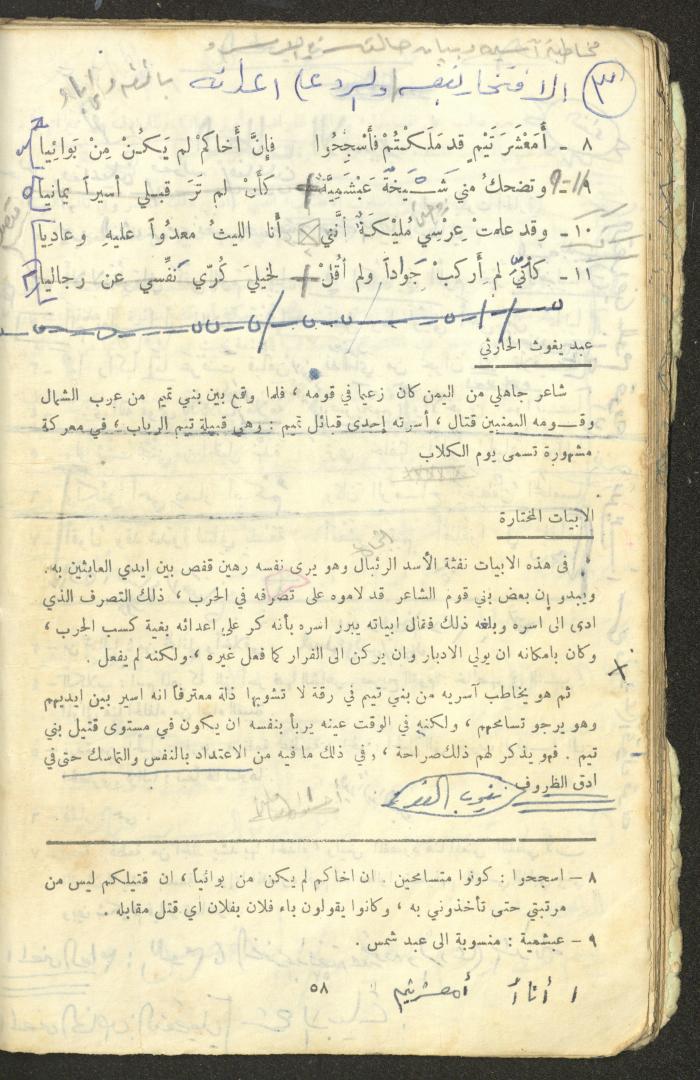 مخاطبة آسريه وبيان حالته في الاسر و
٣ الافتخار بنفسه والرد على اعدائه
٨ - أَمَعْشَرَ تَيْمٍ قد مَلَكْتُمْ فَأَسْجِحُوا فإِنَّ أَخاكمْ لم يَكُنْ مِنْ بَوائِيا
٩ - وتضحكُ مني شَيْخَةٌ عَبْشَمِيَّةٌ كَأَنْ لم تَرَ قبلي أسيراً يمانيا
١٠ - وقد علمتْ عِرْسِي مُلَيْكَةُ أنَّني أنا الليثُ معدُوّاً عليهِ وعادِيا
١١ - كأنيَّ لم أَركبْ جَواداً ولم أقُلْ لخيليَ كُرّي نَفِّسي عن رجاليا
عبد يغوث الحارثي
شاعر جاهلي من اليمن كان زعيما في قومه ، فلما وقع بين بني تميم من عرب الشمال
وقومه اليمنيين قتال ، أسرته إحدى قبائل تميم : وهي قبيلة تيم الرباب ؛ في معركة
مشهورة تسمى يوم الكلاب
الابيات المختارة
في هذه الابيات نفثة الأسد الرئبال وهو يرى نفسه رهين قفص بين ايدي العابثين به .
ويبدو إن بعض بني قوم الشاعر قد لاموه على تصرفه في الحرب ، ذلك التصرف الذي
ادى الى اسره وبلغه ذلك فقال ابياته يبرر اسره بأنه كر على اعدائه بغية كسب الحرب ،
وكان بامكانه ان يولي الادبار وان يركن الى الفرار كما فعل غيره ، ولكنه لم يفعل .
ثم هو يخاطب آسريه من بني تيم في رقة لا تشوبها ذلة معترفاً انه اسير بين ايديهم
وهو يرجو تسامحهم ، ولكنه في الوقت عينه يربأ بنفسه ان يكون في مستوى قتيل بني
تيم . فهو يذكر لهم ذلك صراحة ، وفي ذلك ما فيه من الاعتداد بالنفس والتماسك حتى في
ادق الظروف
٨ - اسجحوا : كونوا متسامحين . ان اخاكم لم يكن من بوائياً ، ان قتيلكم ليس من
مرتبتي حتى تأخذوني به ، وكانوا يقولون باء فلان بفلان اي قتل مقابله .
٩ - عبشمية : منسوبة الى عبد شمس .
٥٨